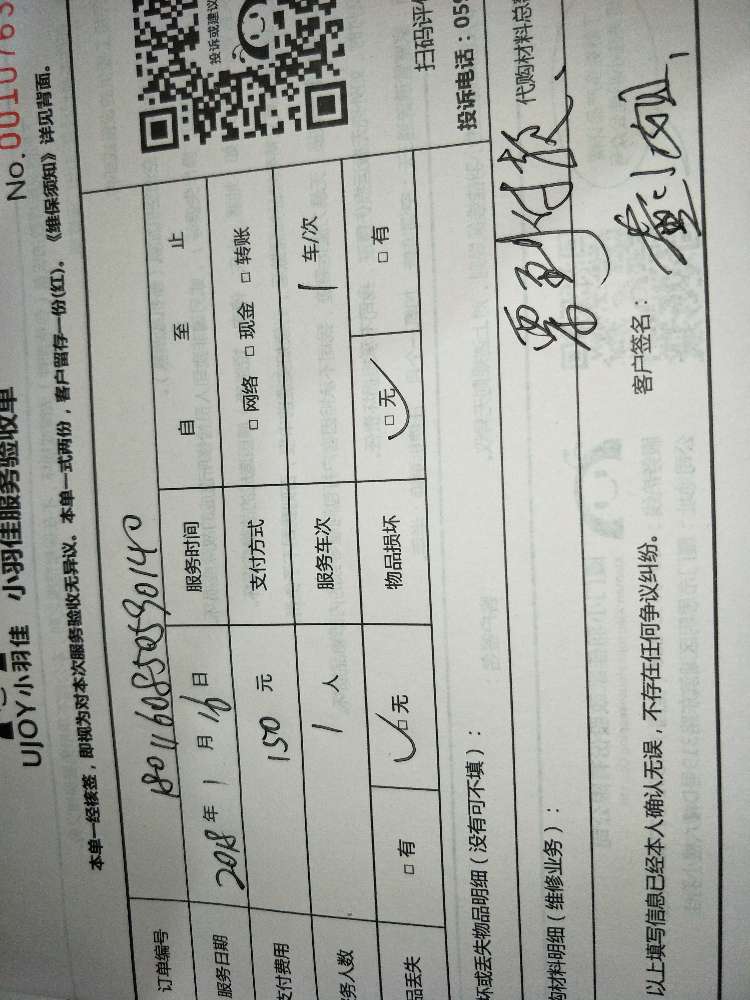 No.0010763
UJOY小羽佳 小羽佳服务验收单
本单一经核签，即视为对本次服务验收无异议。本单一式两份，客户留存一份(红)。《维保须知》详见背面。
投诉或建议
扫码评价
投诉电话：059
订单编号 180116085505590140
服务日期 2018年1月16日 服务时间 自 至 止
支付费用 150元 支付方式 □网络 □现金 □转账
务人数 1人 服务车次 1车/次
品丢失 □有 □无 物品损坏 □无 □有
坏或丢失物品明细（没有可不填）：
票到付款、
购材料明细（维修业务）： 代购材料总
以上填写信息已经本人确认无误，不存在任何争议纠纷。 客户签名：